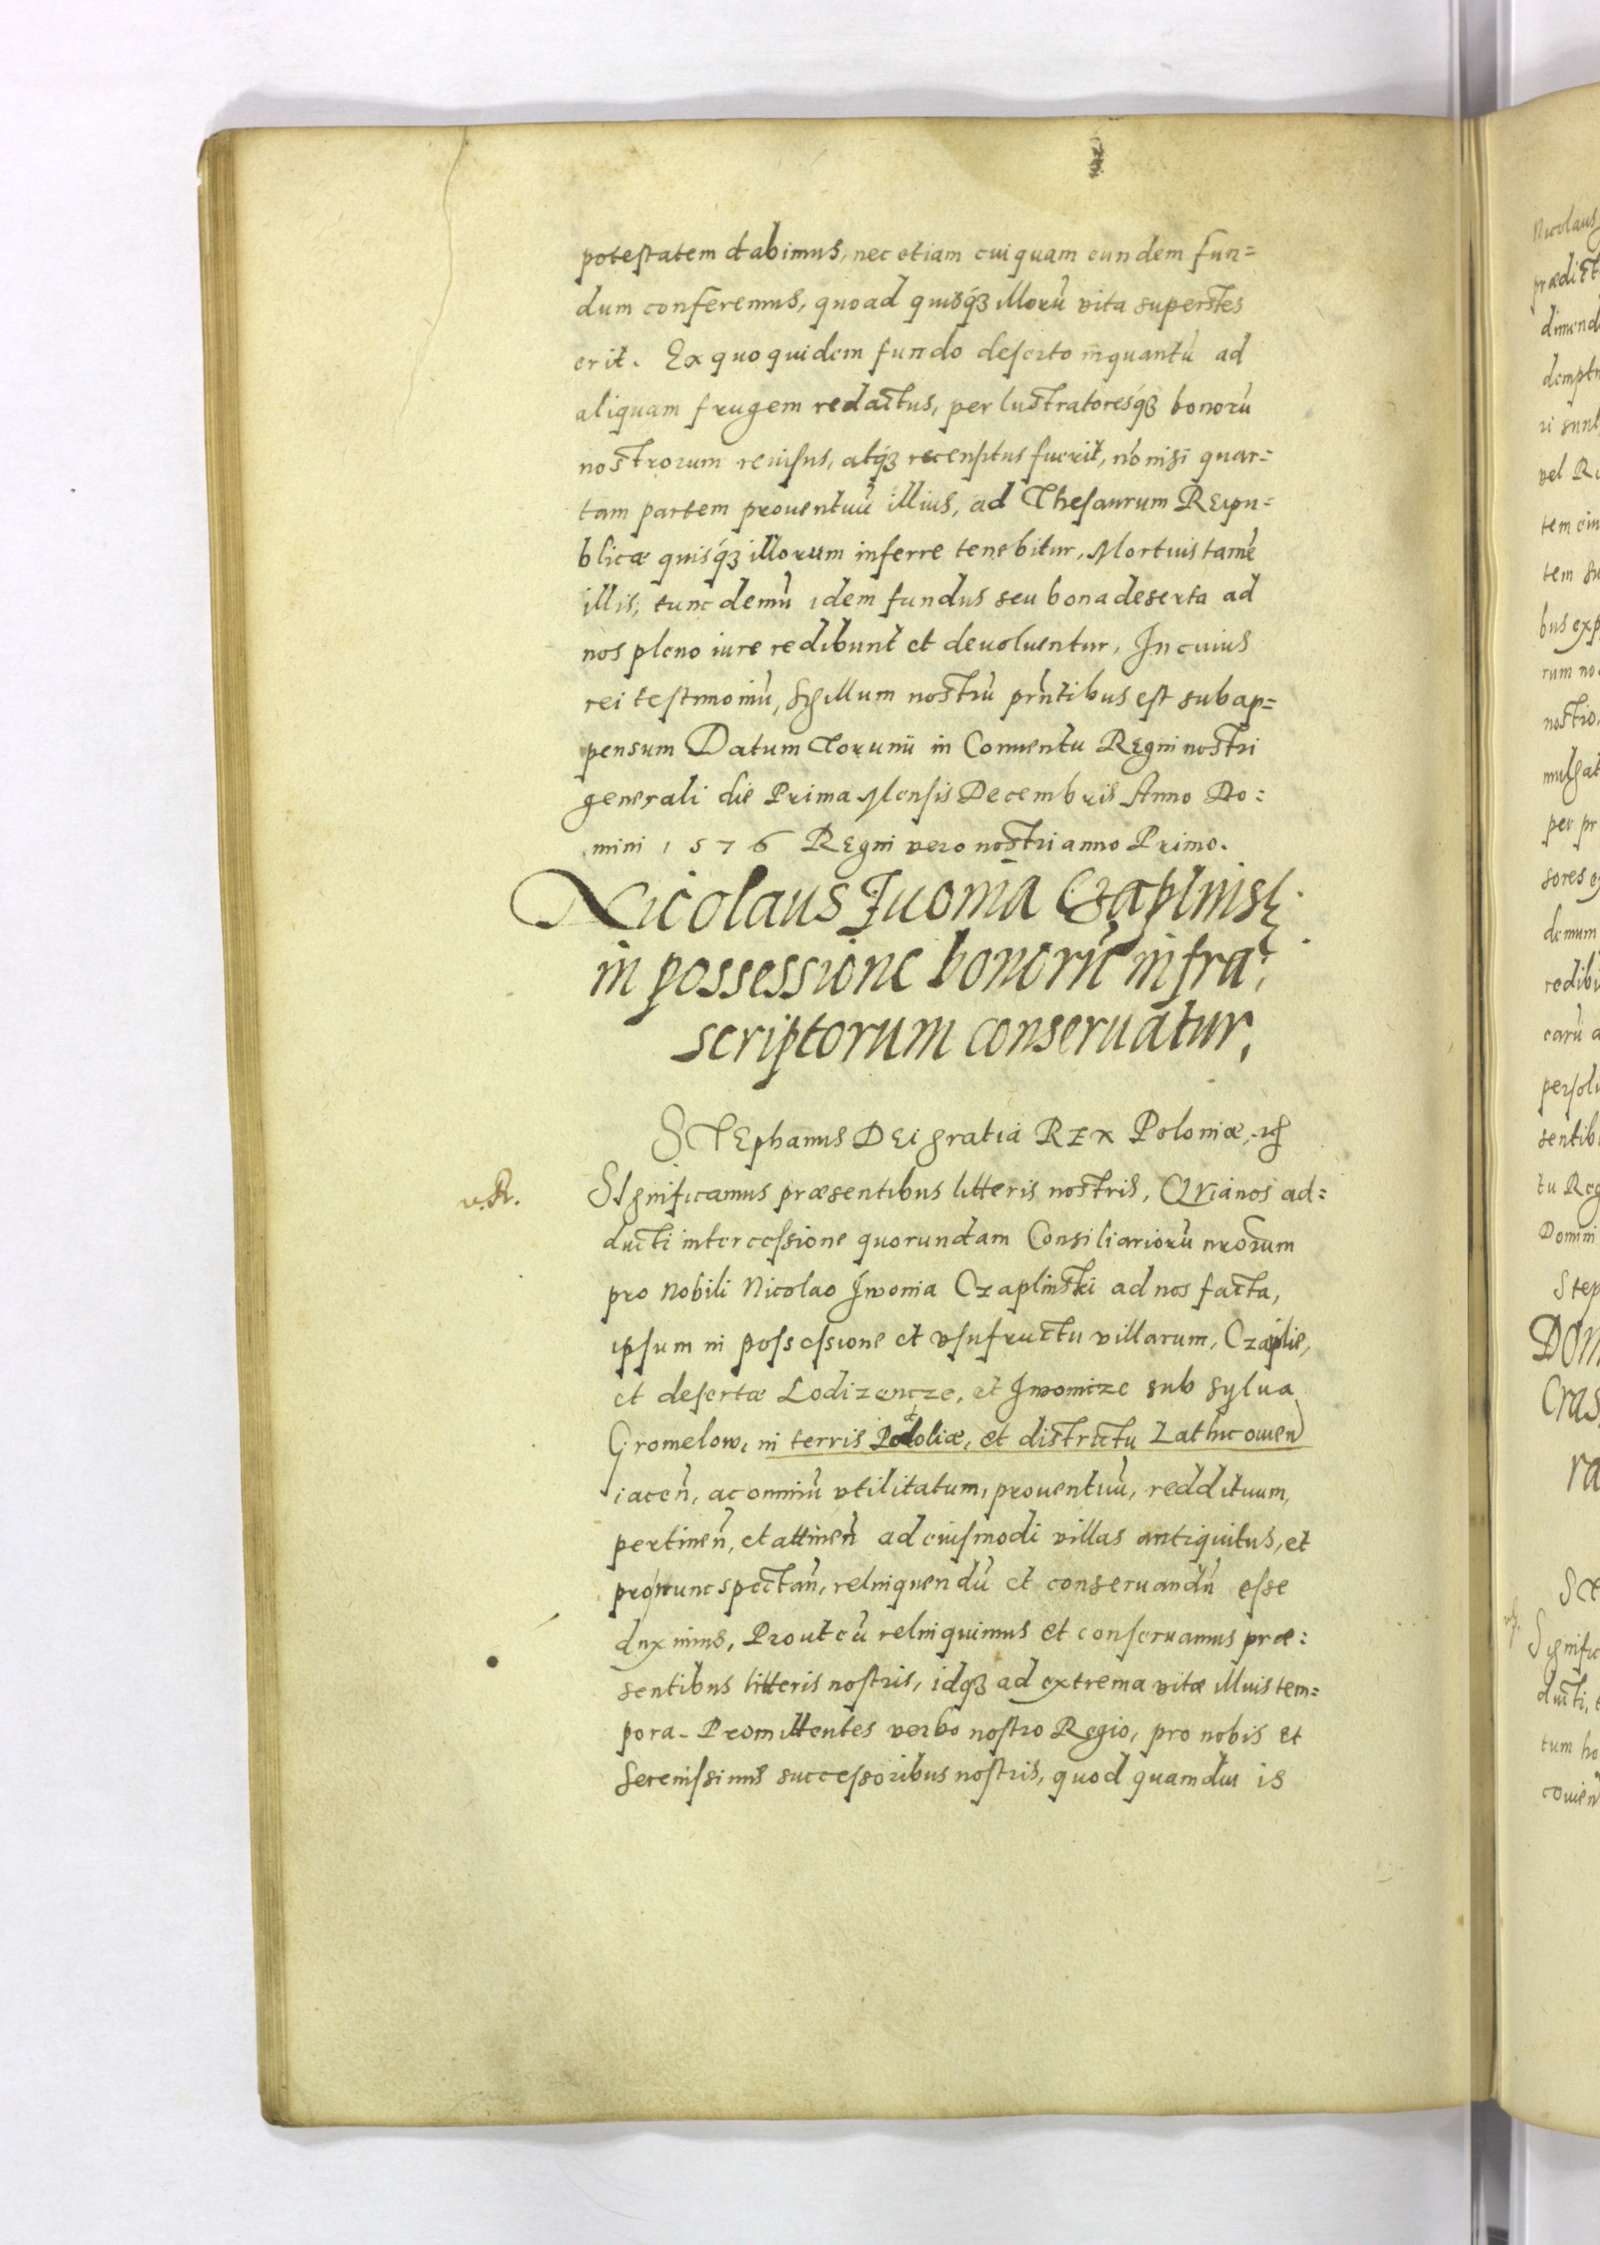 potestatem dabimus, nec etiam cuiquam eundem fun=
dum conferemus, quoad quisq́ꝫ illorũ vita superstes
erit. Ex quo quidem fundo deserto inquantũ ad
aliquam frugem redactus, per lustratoresq́ꝫ bonorũ
nostrorum reuisus, atq́ꝫ recensitus fuerit, nõ nisi quar=
tam partem prouentuũ illius, ad Thesaurum Reipu=
blicæ quisq́ꝫ illorum inferre tenebitur, Mortuis tamẽ
illis, tunc demũ idem fundus seu bona deserta ad
nos pleno iure redibunt et deuoluentur, In cuius
rei testimoniũ, Sigillum nostrũ prñtibus est subap=
pensum Datum Torunii in Conuentu Regni nostri
generali die Prima Mensis Decembris Anno Do=
mini 1576 Regni vero nostri anno Primo.
Nicolaus Iuonia Czaplinsk.
in possessione bonorũ infra:
scriptorum conseruatur,
STEphanus DEi gratia REX Poloniæ, ꝛc̃
v.R. SIgnificamus præsentibus litteris nostris, QVia nos ad=
ducti intercessione quorundam Consiliariorũ nrõrum
pro Nobili Nicolao Iwonia Czaplinski ad nos facta,
ipsum in possessione et vsufructu villarum, Czaplie,
et desertæ Lodizencze, et Iwonicze sub sylua
Gromelow, in terris Podoliæ, et districtu Lathicouien
iaceñ, ac omniũ vtilitatum, prouentuũ, reddituum,
pertineñ, et attineñ ad eiusmodi villas antiquitus, et
pro nunc spectañ, relinquendũ et conseruandũ esse
duximus, Prout eũ relinquimus et conseruamus præ:
sentibus litteris nostris, idq́ꝫ ad extrema vitæ illius tem=
pora. Promittentes verbo nostro Regio, pro nobis et
Serenissimis successoribus nostris, quod quamdiu is